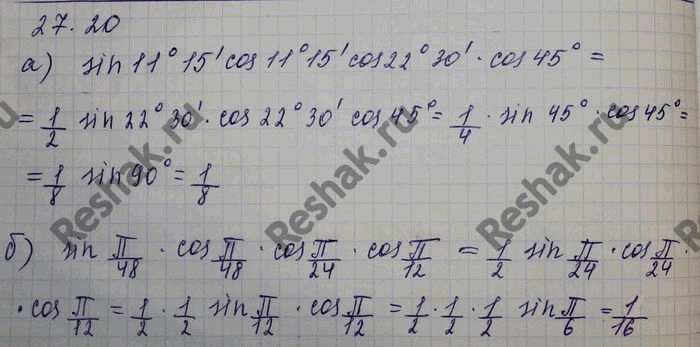 27.20
а) sin 11° 15' cos 11° 15' cos 22° 30' · cos 45° =
= 1/2 sin 22° 30' · cos 22° 30' cos 45° = 1/4 · sin 45° · cos 45° =
= 1/8 sin 90° = 1/8
б) sin π/48 · cos π/48 · cos π/24 · cos π/12 = 1/2 sin π/24 · cos π/24 ·
· cos π/12 = 1/2 · 1/2 sin π/12 · cos π/12 = 1/2 · 1/2 · 1/2 sin π/6 = 1/16
Reshak.ru
Reshak.ru
Reshak.ru